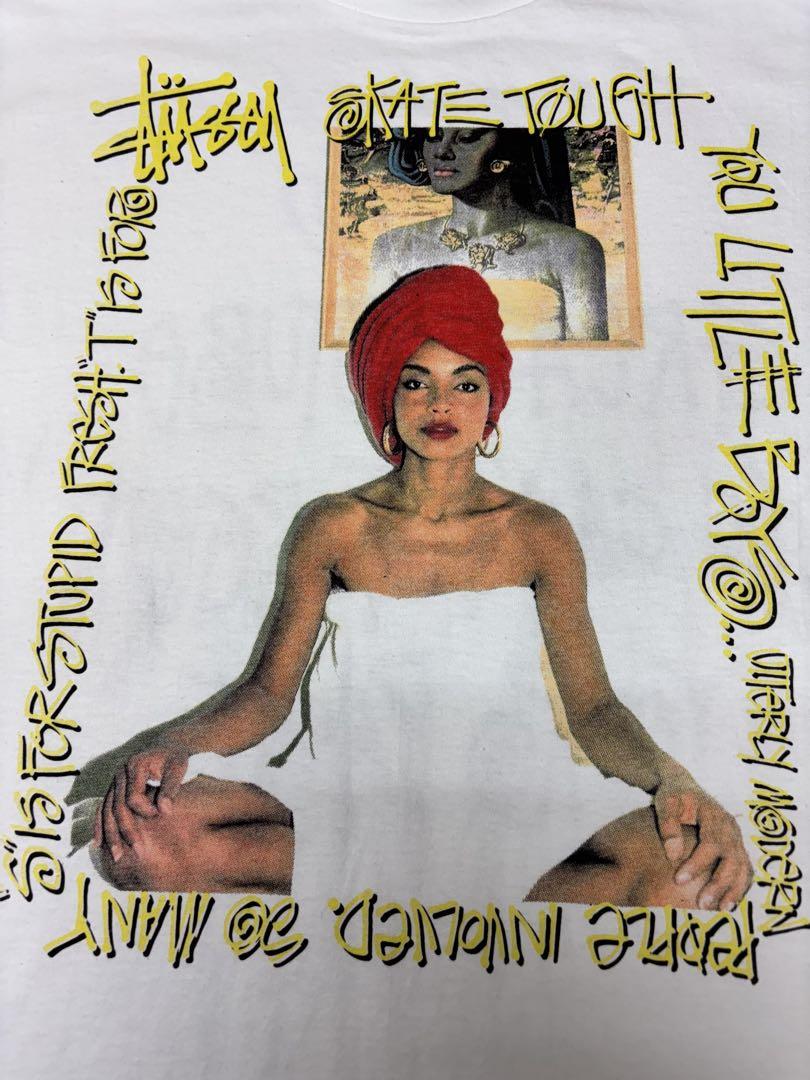 Stüssy SKATE TOUGH
YOU LITTLE BOYS...
UTTERLY MODERN
PEOPLE INVOLVED. SO MANY
"S" IS FOR STUPID FRESH. "T" IS FOR